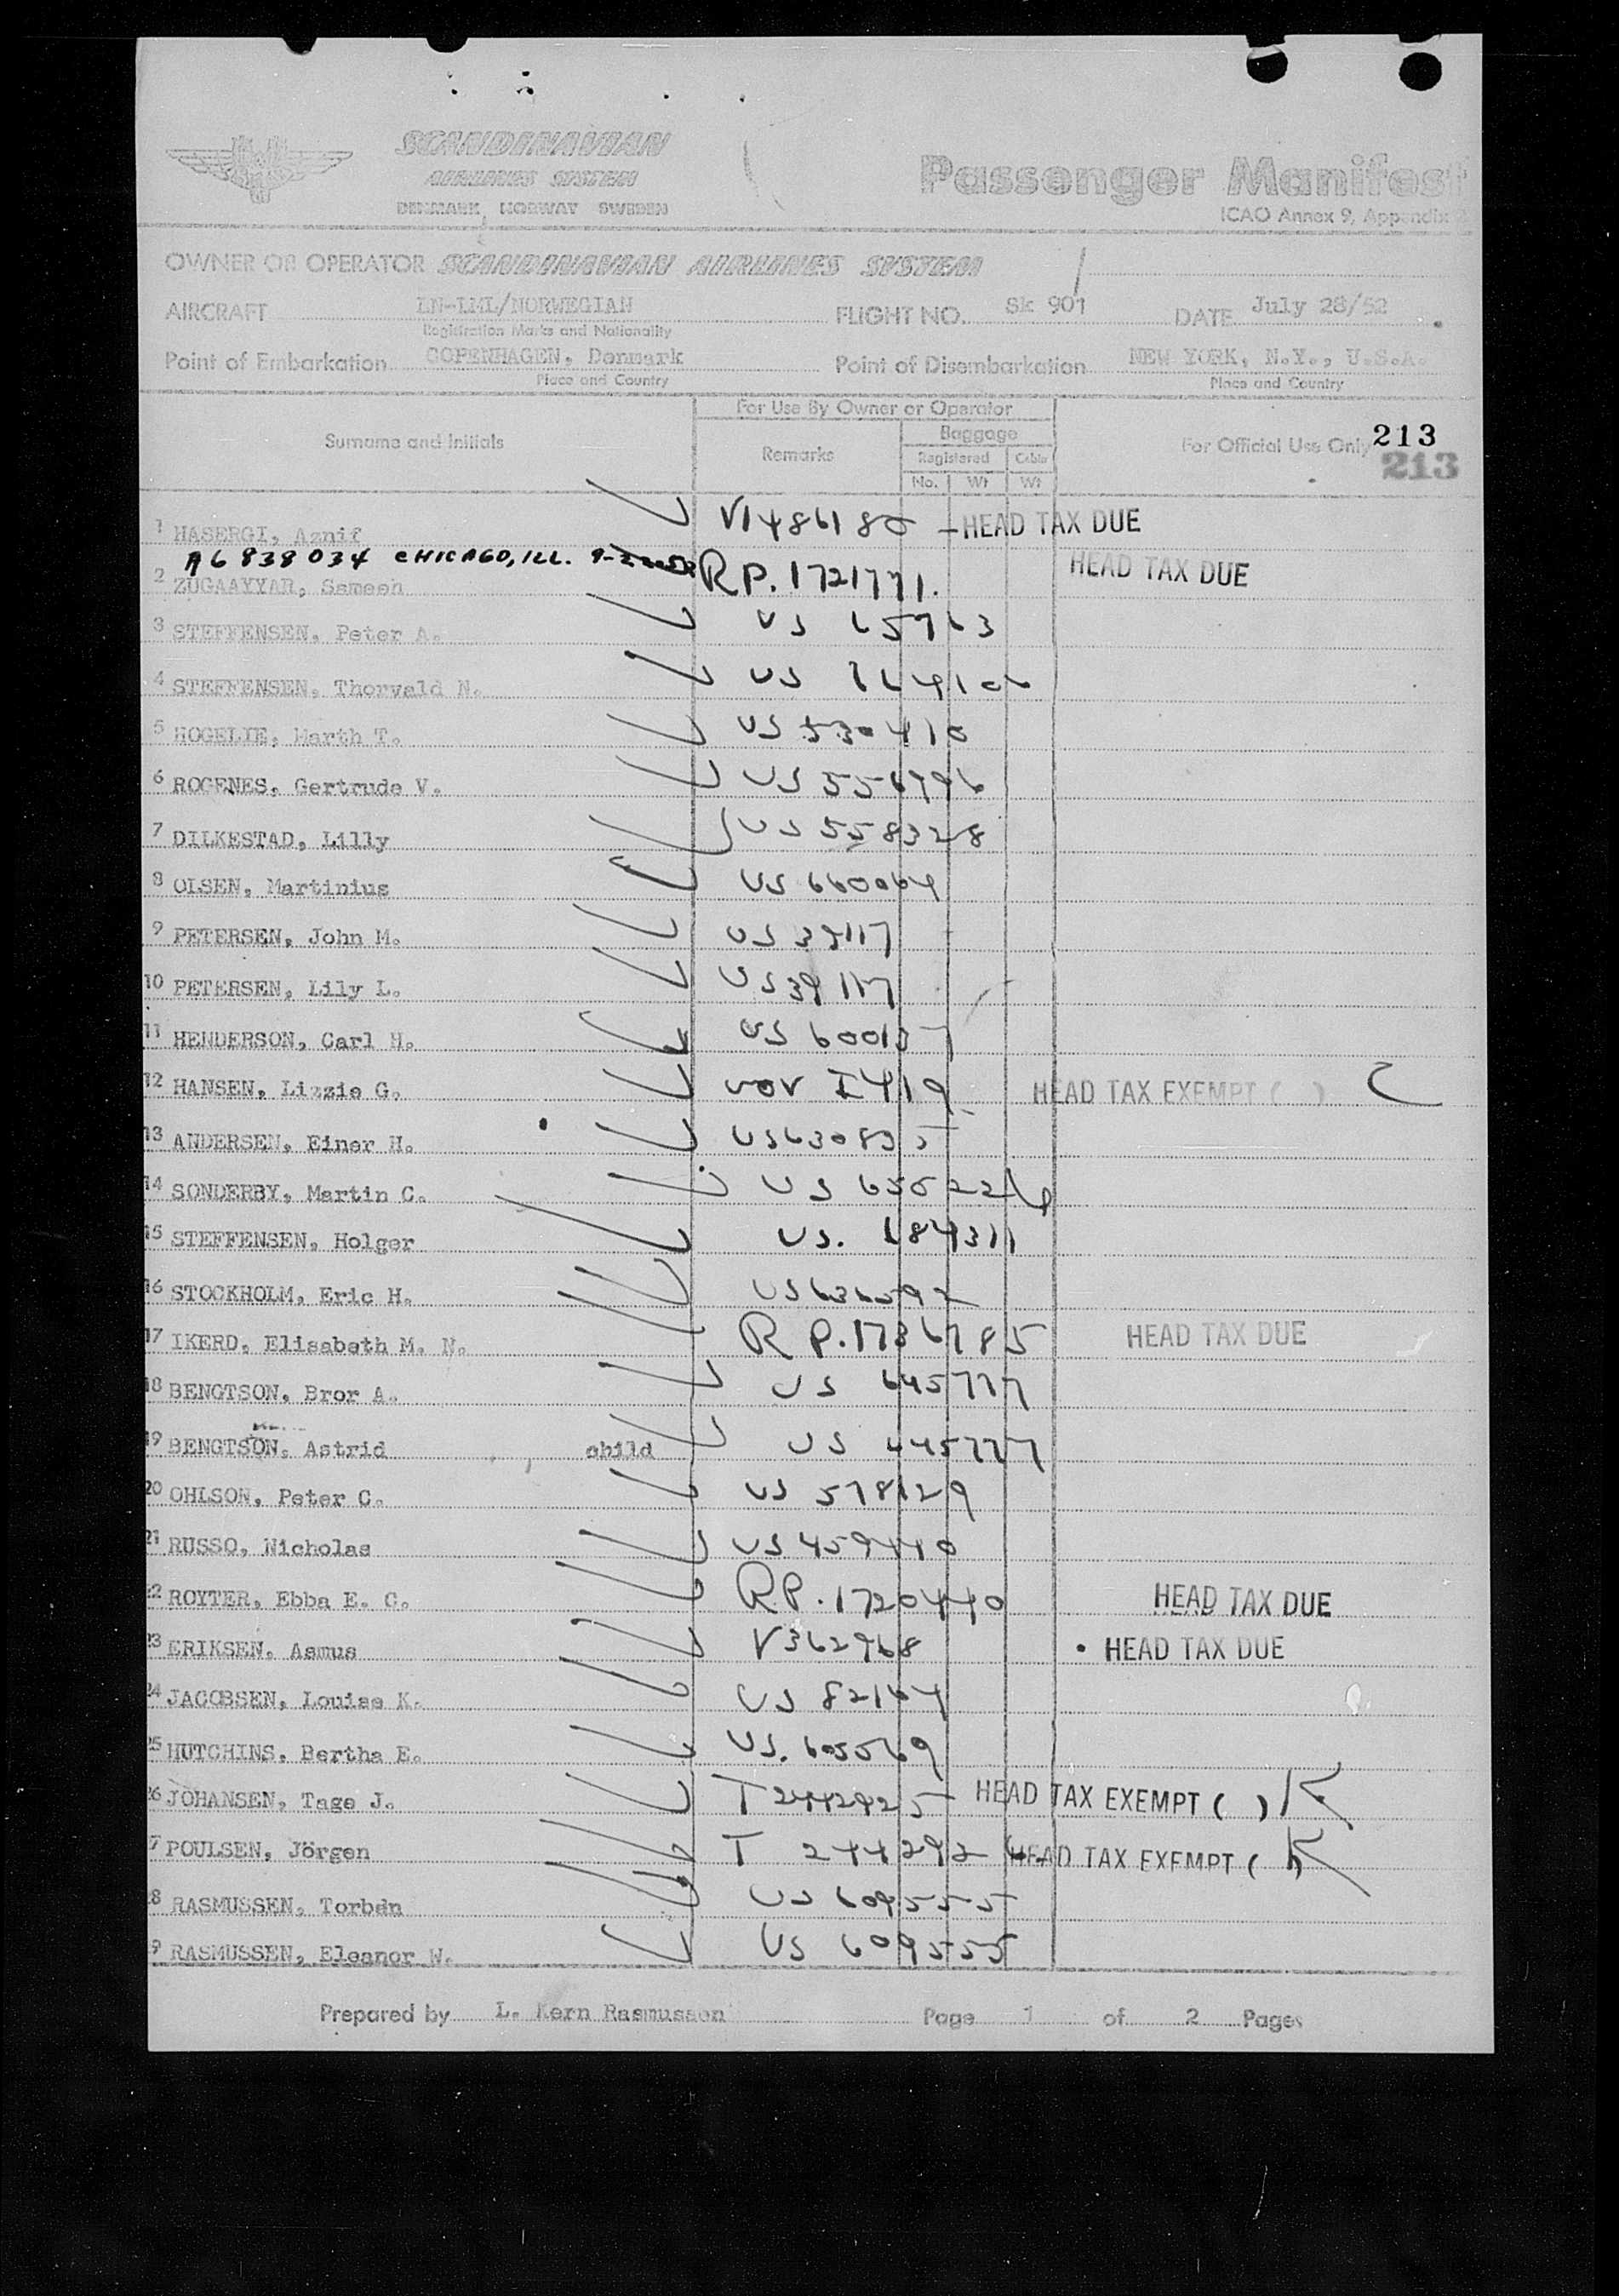 SCANDINAVIAN
AIRLINES SYSTEM
DENMARK NORWAY SWEDEN
Passenger Manifest
ICAO Annex 9, Appendix
OWNER OR OPERATOR SCANDINAVIAN AIRLINES SYSTEM
AIRCRAFT LN-LML/NORWEGIAN FLIGHT NO. Sk 901 DATE July 28/52
Registration Marks and Nationality
Point of Embarkation COPENHAGEN, Denmark Point of Disembarkation NEW YORK, N.Y., U.S.A.
Place and Country Place and Country
For Use By Owner or Operator
Surname and Initials Remarks Baggage For Official Use Only 213
Registered Cabin 213
No. Wt Wt
1 HASERGI, Aznif V1486180 HEAD TAX DUE
A6 838 034 CHICAGO, ILL.
2 ZUGAAYYAR, Sameeh RP. 1721771. HEAD TAX DUE
3 STEFFENSEN, Peter A. US 65763
4 STEFFENSEN, Thorvald N. US
5 HOGELIE, Marth T. US 530410
6 ROGENES, Gertrude V. US 556796
7 DILKESTAD, Lilly US 558328
8 OLSEN, Martinius US 660064
9 PETERSEN, John M. US 39117
10 PETERSEN, Lily L. US 39117
11 HENDERSON, Carl H. US 600137
12 HANSEN, Lizzie G. HEAD TAX EXEMPT ( ) C
13 ANDERSEN, Einer H. US 630835
14 SONDERBY, Martin C. US
15 STEFFENSEN, Holger US. 184311
16 STOCKHOLM, Eric H. US 636592
17 IKERD, Elisabeth M. N. R P. 1736785 HEAD TAX DUE
18 BENGTSON, Bror A. US 645777
19 BENGTSON, Astrid child US 445777
20 OHLSON, Peter C. US 578129
21 RUSSO, Nicholas US 459440
22 ROYTER, Ebba E. C. RP. 1720440 HEAD TAX DUE
23 ERIKSEN, Asmus V362968 HEAD TAX DUE
24 JACOBSEN, Louise K. US 82164
25 HUTCHINS, Bertha E. US. 605569
26 JOHANSEN, Tage J. T 2442925 HEAD TAX EXEMPT ( )
7 POULSEN, Jörgen T 244292 HEAD TAX EXEMPT ( )
8 RASMUSSEN, Torben US 609555
9 RASMUSSEN, Eleanor W. US 609555
Prepared by L. Kern Rasmussen Page 1 of 2 Pages